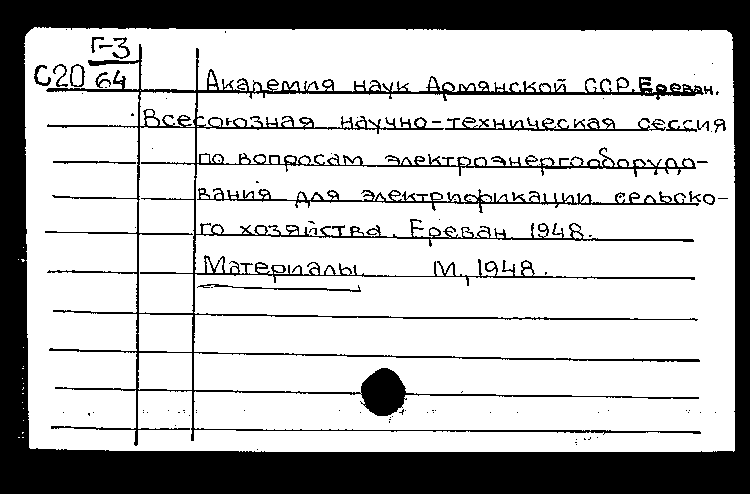 Г-3
С20 64 Академия наук Армянской ССР. Ереван.
Всесоюзная научно-техническая сессия
по вопросам электроэнергооборудо-
вания для электрификации сельско-
го хозяйства. Ереван. 1948.
Материалы. М., 1948.